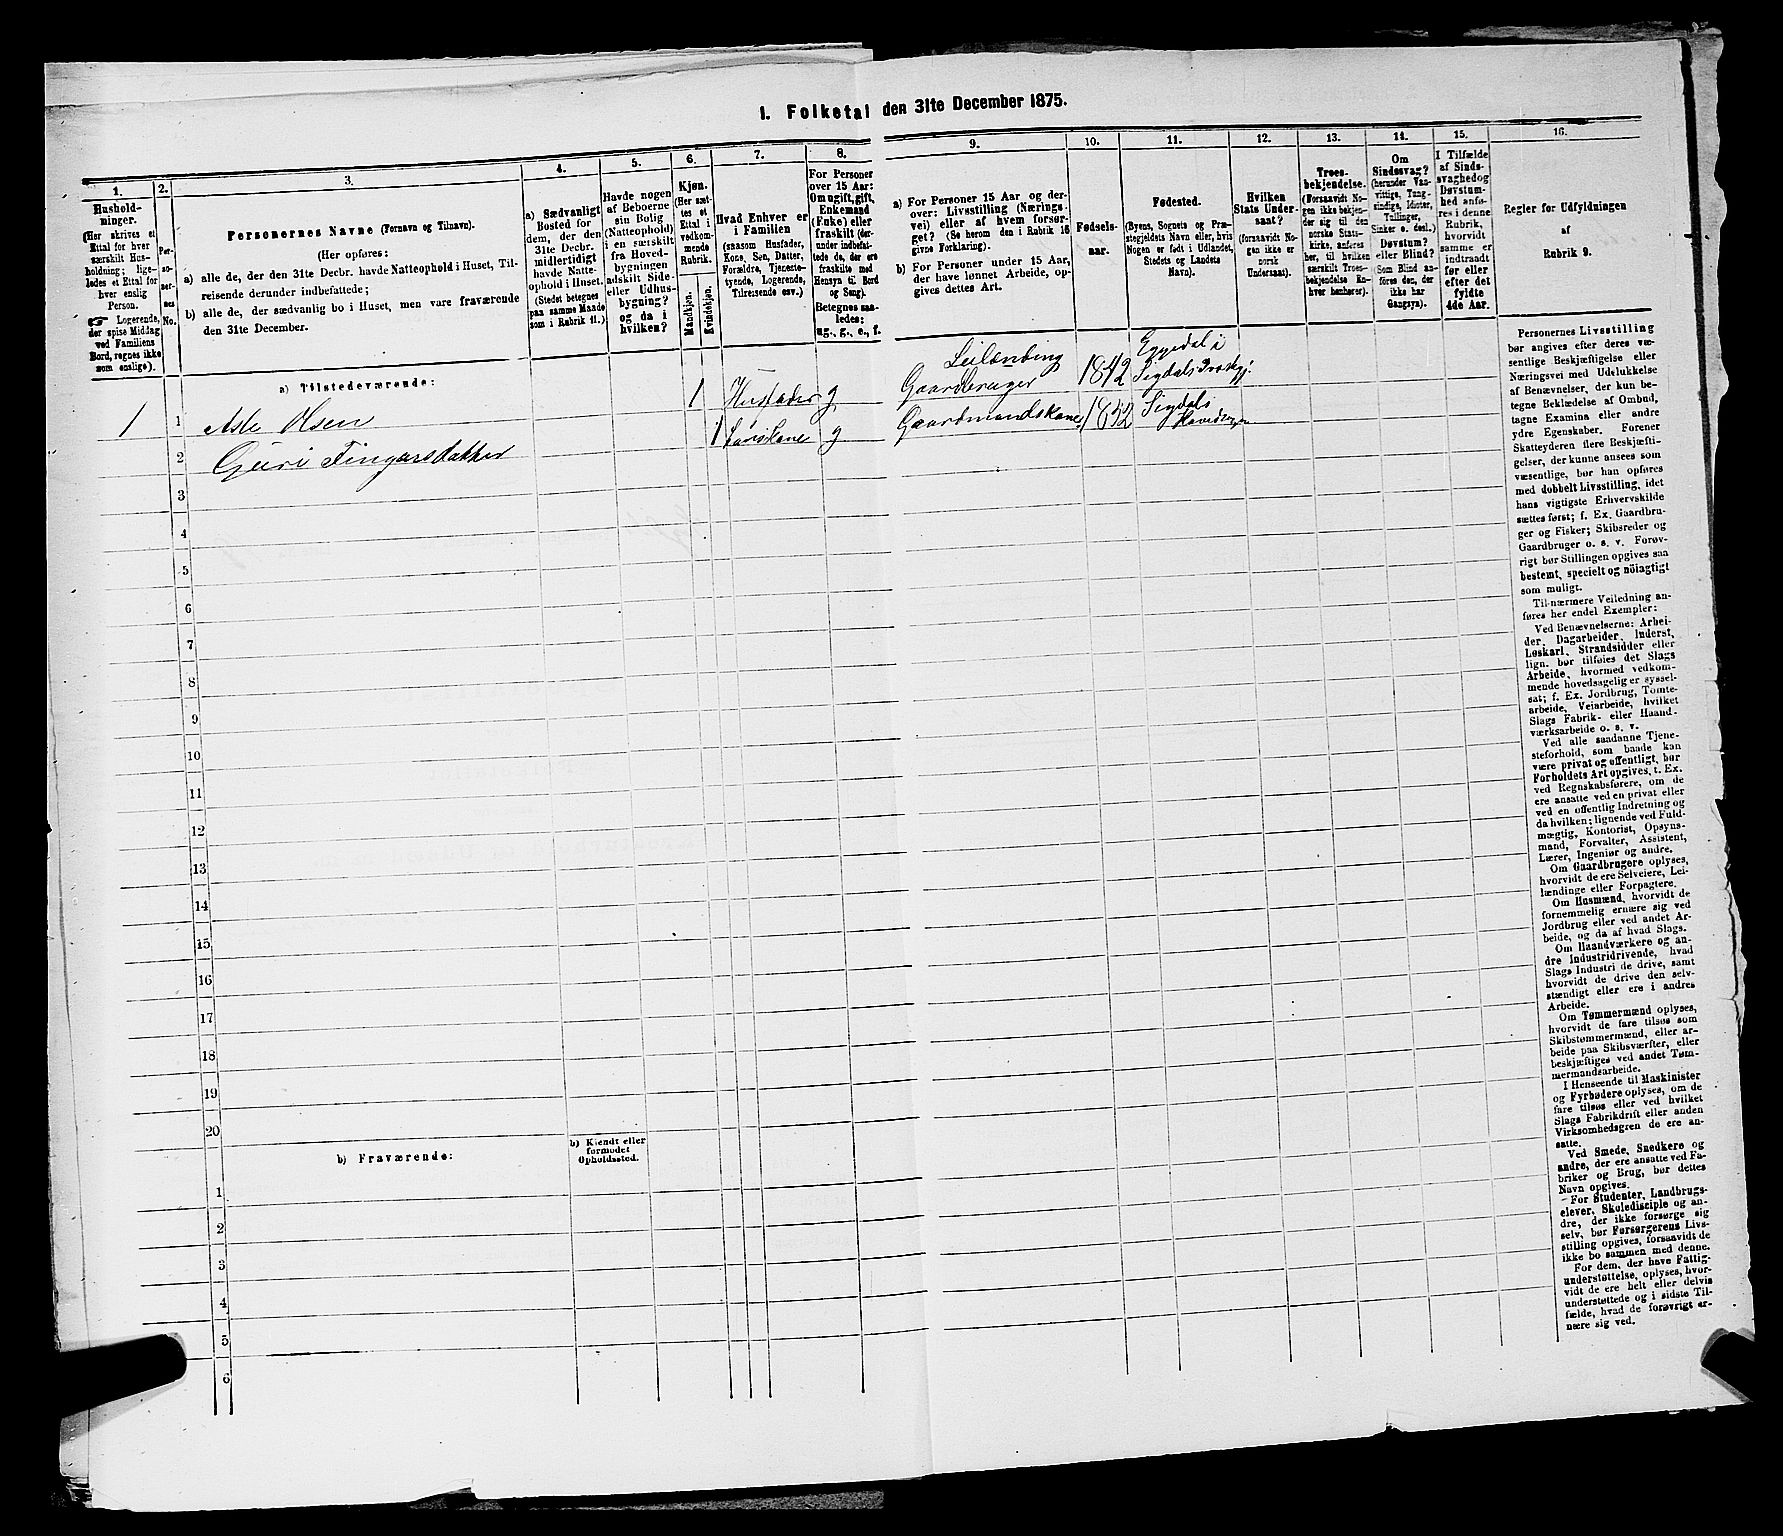 I. Folketal den 31te December 1875.
1.
2.
3.
4.
5.
6.
7.
8.
9.
10.
11.
12.
13.
14.
15.
16.
Hushold-
ninger.
(Her skrives et
Ettal for hver
særskilt Hus-
holdning; lige-
ledes et Ettal for
hver enslig
Person.
Logerende,
der spise Middag
ved Familiens
Bord, regnes ikke
som enslige).
Per-
so-
ner-
nes
No.
Personernes Navne (Fornavn og Tilnavn).
(Her opføres:
a) alle de, der den 31te Decbr. havde Natteophold i Huset, Til-
reisende derunder indbefattede;
b) alle de, der sædvanlig bo i Huset, men vare fraværende
den 31te December.
a) Sædvanligt
Bosted for
dem, der den
31te Decbr.
midlertidigt
havde Natte-
ophold i Huset.
(Stedet betegnes
paa samme Maade
som i Rubrik 11.)
Havde nogen
af Beboerne
sin Bolig
(Natteophold)
i en særskilt
fra Hoved-
bygningen
adskilt Side-
eller Udhus-
bygning?
og da i
hvilken?
Kjøn.
(Her sæt-
tes et
Ettal i
vedkom-
mende
Rubrik.
Mandkjøn.
Kvindekjøn.
Hvad Enhver er
i Familien
(saasom Husfader,
Kone, Søn, Datter,
Forældre, Tjeneste-
tyende, Logerende,
Tilreisende osv.)
For Personer
over 15 Aar:
Om ugift, gift,
Enkemand
(Enke) eller
fraskilt (der-
under indbefat-
tede de, der ere
fraskilte med
Hensyn til Bord
og Seng).
Betegnes saa-
ledes:
ug., g., e., f.
a) For Personer 15 Aar og der-
over: Livsstilling (Nærings-
vei) eller af hvem forsør-
get? (Se herom den i Rubrik 16
givne Forklaring).
b) For Personer under 15 Aar,
der have lønnet Arbeide, op-
gives dettes Art.
Fødsels-
aar.
Fødested.
(Byens, Sognets og Præ-
stegjeldets Navn eller, hvis
Nogen er født i Udlandet,
Stedets og Landets
Navn).
Hvilken
Stats Under-
saat?
(forsaavidt No-
gen ikke er
norsk
Undersaat).
Troes-
bekjendelse.
(Forsaavidt No-
gen ikke bekjen-
der sig til den
norske Stats-
kirke, anføres
her, til hvilken
særskilt Troes-
bekjendelse En-
hver henhører).
Om
Sindssvag?
(herunder Van-
vittige, Tung-
sindige, Idioter,
Tullinger,
Sinker o. desl.)
Døvstum?
eller Blind?
(Som Blind an-
føres den, der
ikke har
Gangsyn).
I Tilfælde
af Sinds-
svaghed og
Døvstum-
hed anfø-
res i denne
Rubrik,
hvorvidt
samme er
indtraadt
før eller
efter det
fyldte
4de Aar.
Regler for Udfyldningen
af
Rubrik 9.
a) Tilstedeværende:
1 1 Asle Olsen 1 Husfader g Leilænding
Gaardbruger 1842 Eggedal i
Sigdals Prstgj:
2 Guri Fingarsdatter 1 hans Kone g Gaardmandskone 1852 Sigdals
3
4
5
6
7
8
9
10
11
12
13
14
15
16
17
18
19
20
b) Fraværende:
b) Kjendt eller
formodet
Opholdssted.
1
2
3
4
5
6
Personernes Livsstilling
bør angives efter deres væ-
sentlige Beskjæftigelse eller
Næringsvei med Udelukkelse
af Benævnelser, der kun be-
tegne Beklædelse af Ombud,
tagne Examina eller andre
ydre Egenskaber. Forener
Skatteyderen flere Beskjæfti-
gelser, der kunne ansees som
væsentlige, bør han opføres
med dobbelt Livsstilling, idet
hans vigtigste Erhvervskilde
sættes først; f. Ex. Gaardbru-
ger og Fisker; Skibsreder og
Gaardbruger o. s. v. Forøv-
rigt bør Stillingen opgives saa
bestemt, specielt og nöiagtigt
som muligt.
Til nærmere Veiledning an-
føres her endel Exempler:
Ved Benævnelserne: Arbei-
der, Dagarbeider, Inderst,
Løskarl, Strandsidder eller
lign. bør tilføies det Slags
Arbeide, hvormed vedkom-
mende hovedsagelig er syssel-
sat; f. Ex. Jordbrug, Tomte-
arbeide, Veiarbeide, hvilket
Slags Fabrik- eller Haand-
værksarbeide o. s. v.
Ved alle saadanne Tjene-
steforhold, som baade kan
være privat og offentligt, bør
Forholdets Art opgives, t. Ex.
ved Regnskabsførere, om de
ere ansatte ved en privat eller
ved en offentlig Indretning og
da hvilken; lignende ved Fuld-
mægtig, Kontorist, Opsyns-
mand, Forvalter, Assistent,
Lærer, Ingeniør og andre.
Om Gaardbrugere oplyses,
hvorvidt de ere Selveiere, Lei-
lændinge eller Forpagtere.
Om Husmænd, hvorvidt de
fornemmelig ernære sig ved
Jordbrug eller ved andet Ar-
beide, og da af hvad Slags.
Om Haandværkere og an-
dre Industridrivende, hvad
Slags Industri de drive, samt
hvorvidt de drive den selv-
stændigt eller ere i andres
Arbeide.
Om Tømmermænd oplyses,
hvorvidt de fare tilsøs som
Skibstømmermænd, eller ar-
beide paa Skibsværfter, eller
beskjæftiges ved andet Tøm-
mermandsarbeide.
I Henseende til Maskinister
og Fyrbødere oplyses, om de
fare tilsøs eller ved hvilket
Slags Fabrikdrift eller anden
Virksomhedsgren de ere an-
satte.
Ved Smede, Snedkere og
andre, der ere ansatte ved Fa-
briker og Brug, bør dettes
Navn opgives.
For Studenter, Landbrugs-
elever, Skoledisciple og an-
dre, der ikke forsørge sig
selv, bør Forsørgerens Livs-
stilling opgives, forsaavidt de
ikke bo sammen med denne.
For dem, der have Fattig-
understøttelse, oplyses, hvor-
vidt de ere helt eller delvis
understøttede og i sidste Til-
fælde, hvad de forøvrigt er-
nære sig ved.